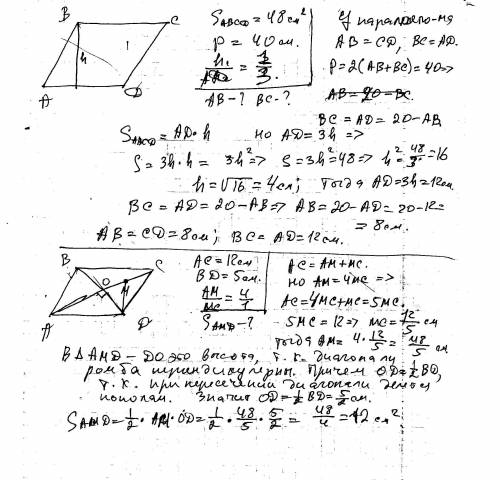 B C
A D
h
S_ABCD = 48 см²
P = 40 см.
h/AD = 1/3.
AB-? BC-?
У параллего-ма
AB = CD, BC = AD.
P = 2(AB+BC) = 40 =>
BC = AD = 20 - AB
S_ABCD = AD·h но AD = 3h =>
S = 3h·h = 3h² => S = 3h² = 48 => h² = 48/3 = 16
h = √16 = 4 см; тогда AD = 3h = 12 см.
BC = AD = 20 - AB => AB = 20 - AD = 20 - 12 =
= 8 см.
AB = CD = 8 см; BC = AD = 12 см.
B C
O M
A D
AC = 12 см
BD = 5 см.
AM/MC = 4/1
S_AMD - ?
AC = AM + MC.
но AM = 4MC =>
AC = 4MC + MC = 5MC.
5MC = 12 => MC = 12/5 см
тогда AM = 4·12/5 = 48/5 см
В ΔAMD - DO это высота, т.к. диагонали
ромба перпендикулярны. Причем OD = 1/2 BD,
т.к. при пересечении диагонали делятся
пополам. Значит OD = 1/2 BD = 5/2 см.
S_AMD = 1/2·AM·OD = 1/2·48/5·5/2 = 48/4 = 12 см².